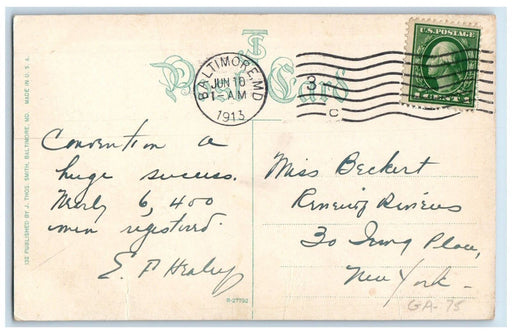 Post Card
BALTIMORE, MD
JUN 10
1- AM
1913
3
U.S. POSTAGE
Convention a
huge success.
Nearly 6,400
men registered.
E. P. Healey
Miss Beckert
Reviews
30 Irving Place,
New York.
GA-75
132 PUBLISHED BY J. THOS. SMITH, BALTIMORE, MD. MADE IN U.S.A.
R-27792